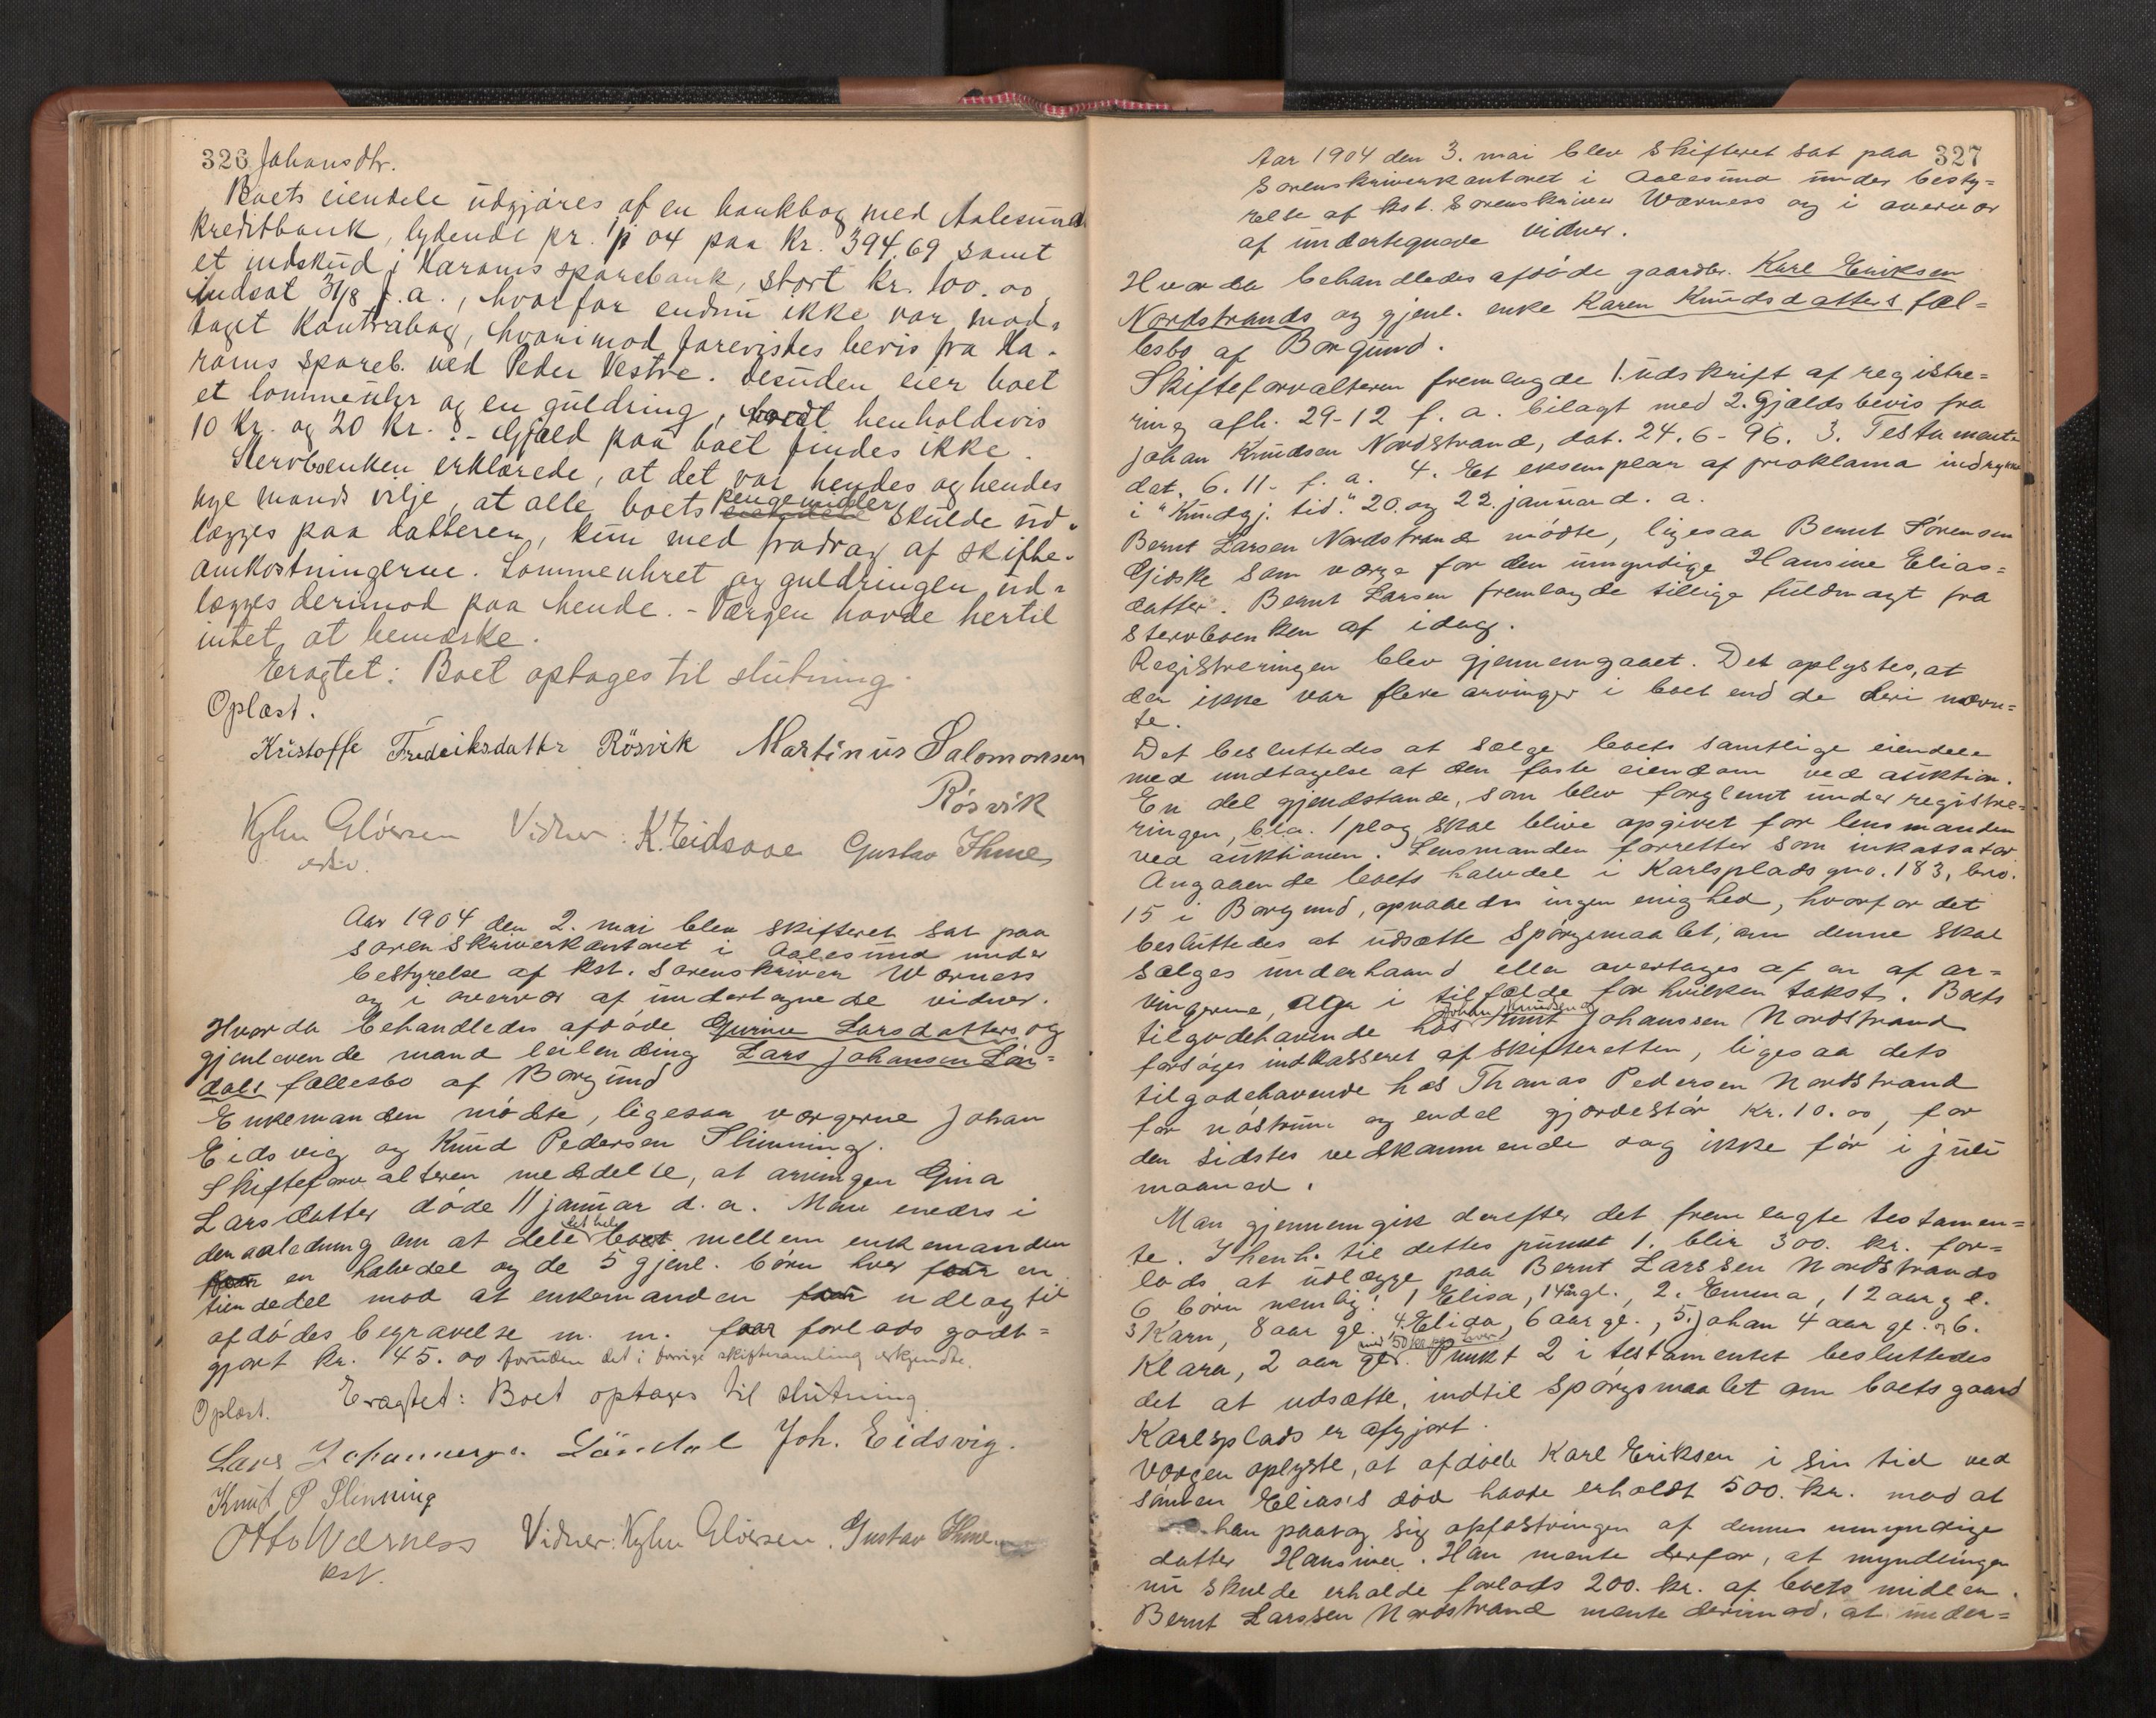 326 Johansdtr.
Boets eiendele udgjøres af en bankbog med Aalesunds
kreditbank, lydende pr. 1/1 04 paa kr. 394.69 samt
et indskud i Harams sparebank, stort kr. 100.00,
indsat 31/8 f.a., hvorfor endnu ikke var mod-
taget kontrabog, hvorimod forevistes bevis fra Ha-
rams spareb. ved Peder Vestre. Desuden eier boet
et lommeuhr og en guldring, værdt henholdsvis
10 kr. og 20 kr. - Gjæld paa boet findes ikke.
Stervboenken erklærede, at det var hendes og hendes
mands vilje, at alle boets pengemidler skulde ud-
lægges paa datteren, kun med fradrag af skifte-
omkostningerne. Lommeuhret og guldringen ud-
lægges derimod paa hende. - Værgen havde hertil
intet at bemærke.
Eragtet: Boet optages til slutning.
Oplæst.
Kristoffe Fredriksdatter Rösvik Martinus Salomonsen
Rösvik
Kyhn Gløersen Vidner: K. Eidsaae Gustav Ihme
Aar 1904 den 2. mai blev skifteret sat paa
sorenskriverkontoret i Aalesund under
bestyrelse af kst. sorenskriver Wærness
og i overvær af undertegnede vidner.
Hvorda behandledes afdøde Gurine Larsdatters og
gjenlevende mand leilending Lars Johansen Løn-
dals fællesbo af Borgund
Enkemanden mødte, ligesaa værgerne Johan
Eidsvig og Knud Pedersen Slinning.
Skifteforvalteren meddelte, at arvingen Gina
Larsdatter døde 11 januar d. a. Man enedes i
den anledning om at dele det hele boet mellem enkemanden
faar en halvdel og de 5 gjenl. børn hver faar en
tiendedel mod at enkemanden faar udlæg til
afdødes begravelse m. m. faar forlods godt-
gjort kr. 45.00 foruden det i forrige skiftesamling erkjendte.
Oplæst. Eragtet: Boet optages til slutning
Lars Johannesen Løndal Joh. Eidsvig.
Knut P Slinning
Otto Wærness Vidner: Kyhn Gløersen. Gustav Ihme
kst.
Aar 1904 den 3. mai blev skifteret sat paa 327
Sorenskriverkontoret i Aalesund under besty-
relse af kst. Sorenskriver Wærness og i overvær
af undertegnede vidner.
Hvorda behandledes afdøde gaardbr. Karl Eriksen
Nordstrands og gjenl. enke Karen Knudsdatters fæl-
lesbo af Borgund.
Skifteforvalteren fremlagde 1. udskrift af registre-
ring afh. 29-12 f. a. bilagt med 2. Gjældsbevis fra
Johan Knudsen Nordstrand, dat. 24.6-96. 3. Testamente
dat. 6.11- f. a. 4. Et eksemplar af proklama indrykket
i "Kundgj. tid." 20. og 22. januar d. a.
Bernt Larsen Nordstrand mødte, ligesaa Bernt Sørensen
Gjøske som værge for den umyndige Hansine Elias-
datter. Bernt Larsen fremlagde tillige fuldmagt fra
stervboenken af idag.
Registreringen blev gjennemgaaet. Det oplystes, at
der ikke var flere arvinger i boet end de deri nævn-
te.
Det besluttedes at sælge boets samtlige eiendele
med undtagelse af den faste eiendom ved auktion.
En del gjenstande, som blev forglemt under registre-
ringen, bl.a. 1 plog skal blive opgivet for lensmanden
ved auktionen. Lensmanden forretter som inkassator
Angaaende boets halvdel i Karlsplads gno. 183, bno.
15 i Borgund, opnaaedes ingen enighed, hvorfor det
besluttedes at udsætte spørgsmaalet, om denne skal
sælges underhaand eller overtages af en af ar-
vingerne, og i tilfælde for hvilken takst. Boets
tilgodehavende hos Johan Knudsen og Knut Johanssen Nordstrand
forsøges indkasseret af skifteretten, ligesaa dets
tilgodehavende hos Thomas Pedersen Nordstrand
for nøstrum og endel gjærdestør kr. 10.00, for
den sidstes vedkommende dog ikke før i juli
maaned.
Man gjennemgik derefter det fremlagte testamen-
te. I henh. til dettes punkt 1. blir 300. kr. for-
lods at udlægge paa Bernt Larssen Nordstrands
6 børn nemlig: 1 Elisa, 14 aar gl., 2. Emma, 12 aar gl.
3 Karn, 8 aar gl. 4. Elida, 6 aar gl., 5. Johan 4 aar gl. og 6.
Klara, 2 aar gl. med 50 kr. paa hver. Punkt 2 i testamentet besluttedes
det at udsætte, indtil spørgsmaalet om boets gaard
Karlsplads er afgjort.
Værgen oplyste, at afdøde Karl Eriksen i sin tid ved
sønnen Elias's død havde erholdt 500. kr. mod at
han paatog sig opfostringen af dennes umyndige
datter Hansine. Han mente derfor, at myndlingen
nu skulde erholde forlods 200. kr. af boets midler.
Bernt Larssen Nordstrand mente derimod, at under-